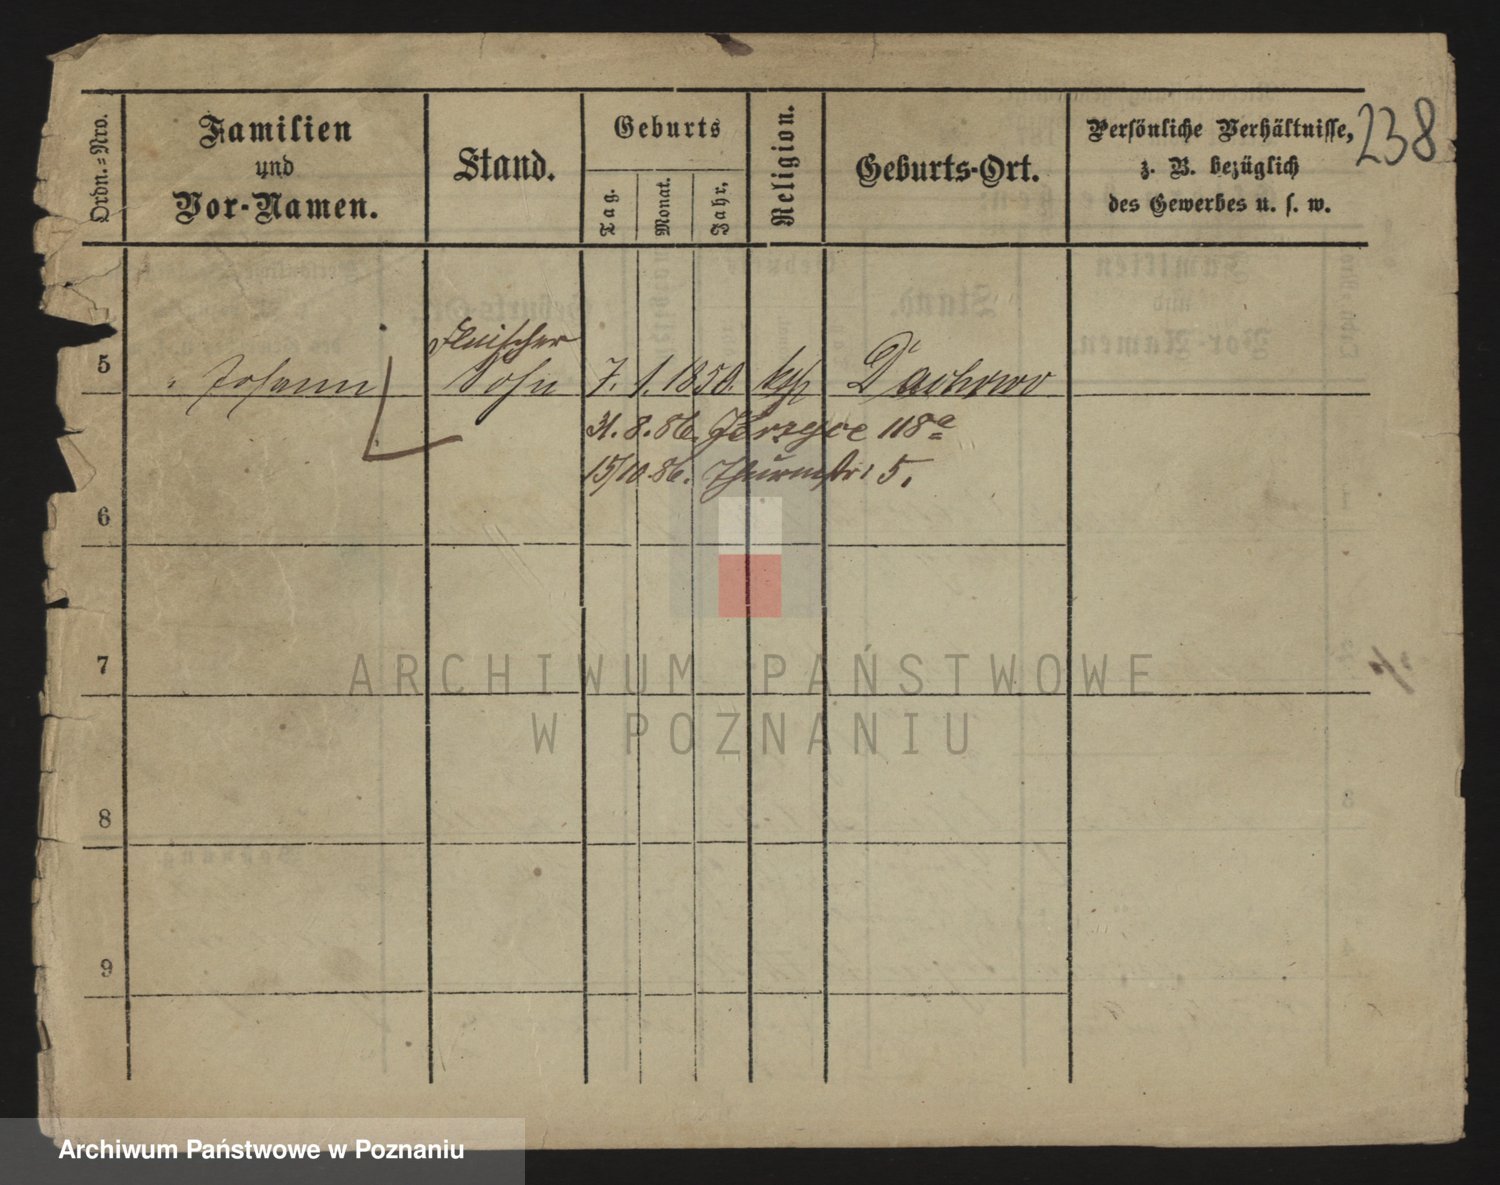 238
Ordn.-Nro.
Familien
und
Vor-Namen.
Stand.
Geburts
Tag.
Monat.
Jahr.
Religion.
Geburts-Ort.
Persönliche Verhältnisse,
z. B. bezüglich
des Gewerbes u. s. w.
Fleischer
5 " Johann Sohn 7. 1. 1850. kath
31. 8. 86. Jerzyce 118a
15/10. 86. Thurmstr: 5.
6
7
8
9
ARCHIWUM PAŃSTWOWE
W POZNANIU
Archiwum Państwowe w Poznaniu